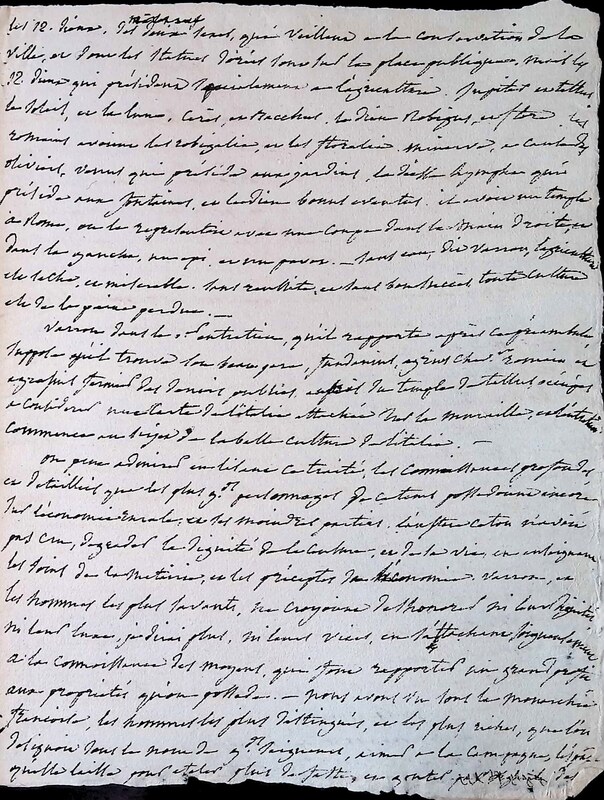 les 12. Dieux, des deux sexes, qui veillent a la conservation de la
ville, et dont les statues dorées sont sur la place publique, mais les
12. dieux qui président specialement a l'agriculture. Jupiter et tellus
le soleil, et la lune, Cerès, et Bacchus, le dieu Robigus, et flore. les
romains avoient les robigalia, et les floralia. minerve, a cause des
oliviers, venus qui préside aux jardins, la déesse lympha qui
préside aux fontaines, et le dieu bonus eventus. il avoit un temple
a Rome, on le representoit avec une coupe dans la main droite, et
dans la gauche, un epi, et un pavot. — sans eau, dit varron, l'agriculture
est seche, et miserable. sans reussite, et sans bon succès toute culture
est de la peine perdue. —
Varron dans le entretien, qu'il rapporte après ce préambule
suppose qu'il trouve son beau pere, fundanius, agrius chev. romain et
agrasius fermier des deniers publics, au temple de tellus occupés
a considerer une carte de l'italie attachée sur la muraille, et l'entretien
commence au sujet de la belle culture de l'italie. —
On peut admirer en lisant ce traité, les connoissances profondes
et detaillées que les plus gds personnages de ce tems possedoient encore
sur l'économie rurale, et ses moindres parties. l'austere caton n'avoit
pas cru, degrader la dignité de la censure, et de sa vie, en enseignant
les soins de la metairie, et les préceptes de l'économie. varron, et
les hommes les plus savants, ne croyoient deshonorer ni leur dignité
ni leur luxe, je dirai plus, ni leurs vices, en s'attachant soigneusement
a la connoissance des moyens, qui font rapporter un grand profit
aux propriétés qu'on possede. — nous avons vu sous la monarchie
françoise, les hommes les plus distingués, et les plus riches, que l'on
designoit sous le nom de gds seigneurs, aimer a la campagne,
quelle laisse pour etaler plus de faste, et gouter